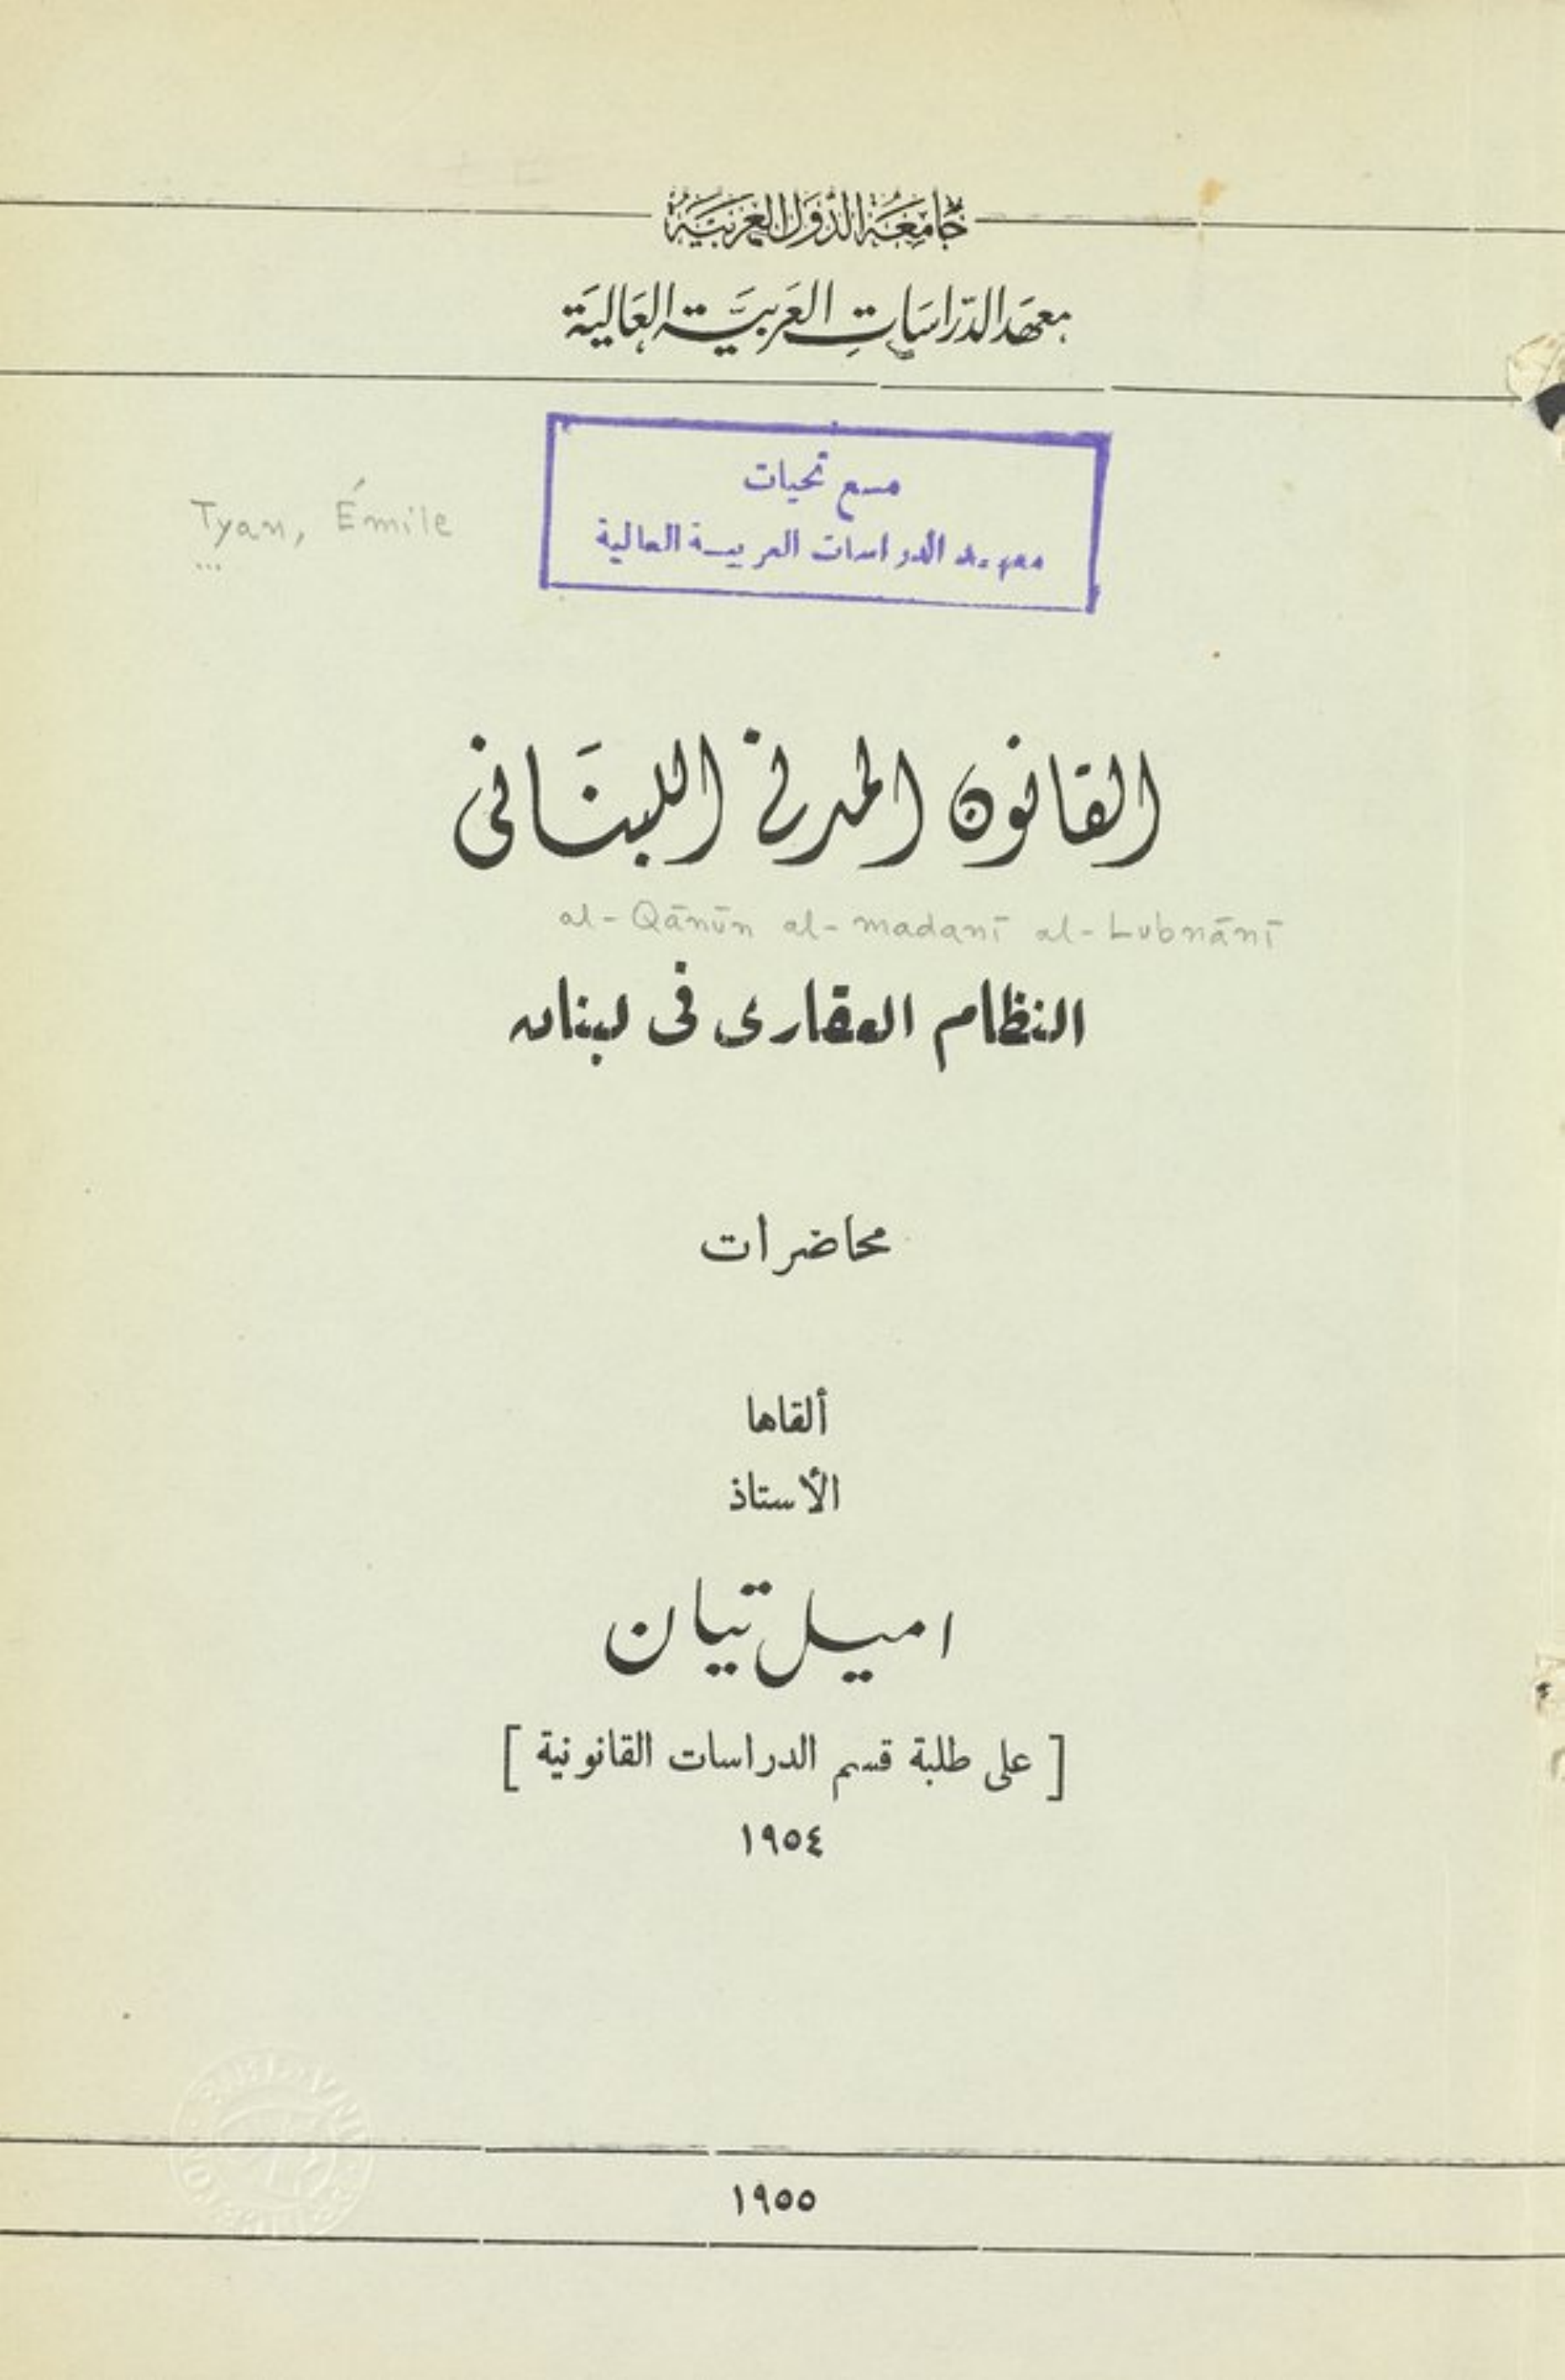 جَامِعَة الدُّوَل العَرَبيَّة
معهَد الدّرَاسَاتِ العَربيَّة العَاليَة
مع تحيات
معهد الدراسات العربية العالية
Tyan, Émile
القانون المدنى اللبنَانى
al-Qānūn al-madanī al-Lubnānī
النظام العقارى فى لبنان
محاضرات
ألقاها
الأستاذ
اميل تيان
[ على طلبة قسم الدراسات القانونية ]
١٩٥٤
١٩٥٥